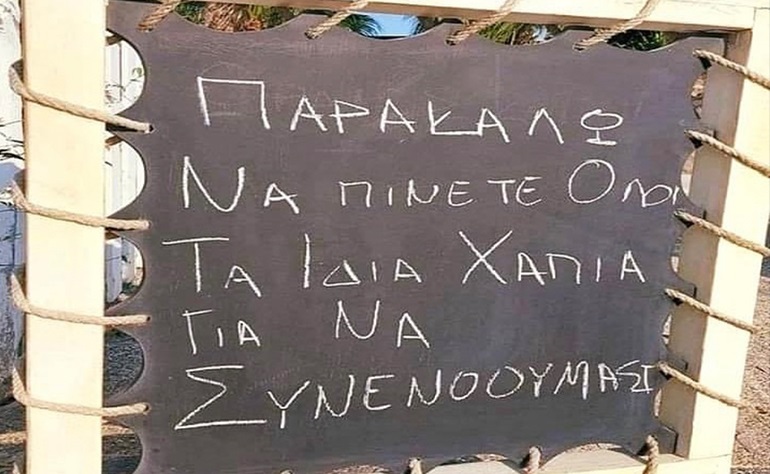 ΠΑΡΑΚΑΛΩ
ΝΑ ΠΙΝΕΤΕ ΟΛΟΙ
ΤΑ ΙΔΙΑ ΧΑΠΙΑ
ΓΙΑ ΝΑ
ΣΥΝΕΝΟΟΥΜΑΣΤ